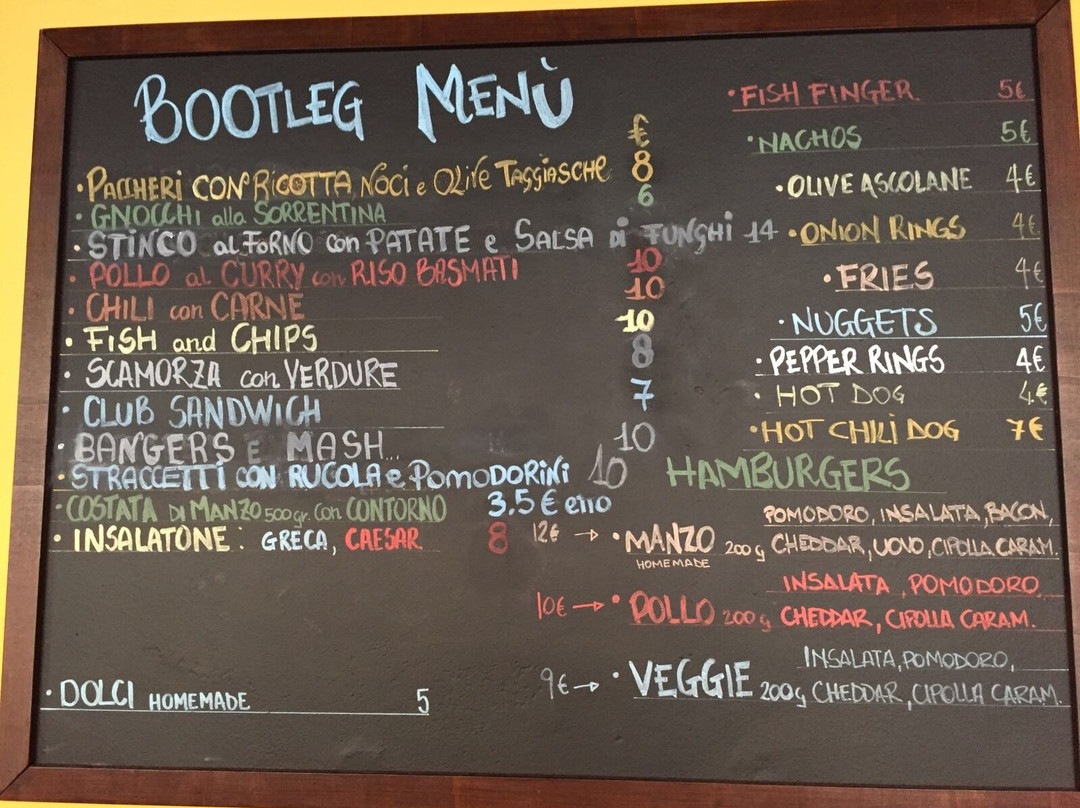 BOOTLEG MENÙ
€
• PACCHERI CON RICOTTA, NOCI e OLIVE TAGGIASCHE 8
• GNOCCHI alla SORRENTINA 6
• STINCO al FORNO con PATATE e SALSA DI FUNGHI 14
• POLLO al CURRY con RISO BASMATI 10
• CHILI con CARNE 10
• FISH and CHIPS 10
• SCAMORZA con VERDURE 8
• CLUB SANDWICH 7
• BANGERS E MASH... 10
• STRACCETTI CON RUCOLA e POMODORINI 10
• COSTATA DI MANZO 500 gr. Con CONTORNO 3.5 € etto
• INSALATONE: GRECA, CAESAR 8
• DOLCI HOMEMADE 5
• FISH FINGER 5€
• NACHOS 5€
• OLIVE ASCOLANE 4€
• ONION RINGS 4€
• FRIES 4€
• NUGGETS 5€
• PEPPER RINGS 4€
• HOT DOG 4€
• HOT CHILI DOG 7€
HAMBURGERS
POMODORO, INSALATA, BACON,
12€ → • MANZO 200 g CHEDDAR, UOVO, CIPOLLA CARAM.
HOMEMADE
INSALATA, POMODORO,
10€ → • POLLO 200 g CHEDDAR, CIPOLLA CARAM.
INSALATA, POMODORO,
9€ → • VEGGIE 200g CHEDDAR, CIPOLLA CARAM.